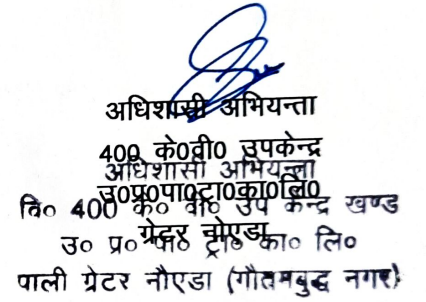 अधिशासी अभियन्ता
400 के०वी० उपकेन्द्र
अधिशासी अभियन्ता
उ०प्र०पा०ट्रा०का०लि०
वि० 400 के० वी० उप केन्द्र खण्ड
ग्रेटर नोएडा
उ० प्र० पा० ट्रां० का० लि०
पाली ग्रेटर नौएडा (गौतमबुद्ध नगर)